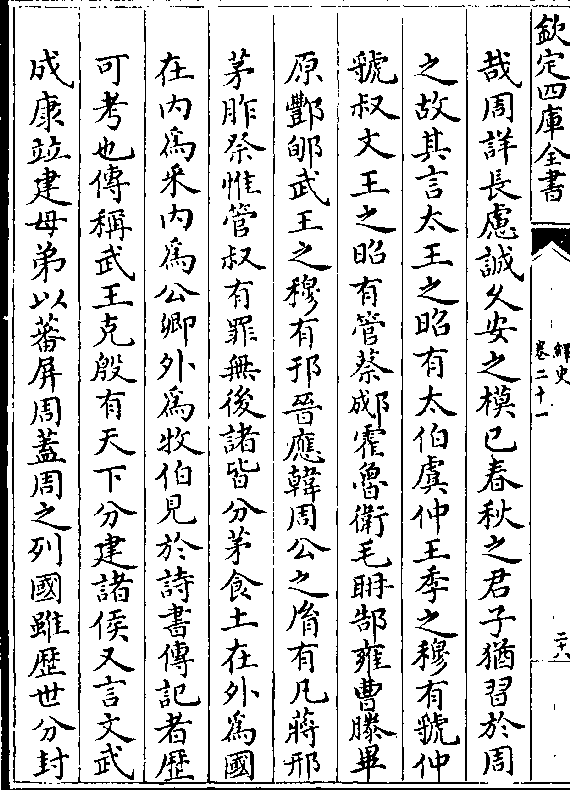 欽定四庫全書
繹史
卷二十一
二十八
哉周詳長慮誠久安之模已春秋之君子猶習於周
之故其言太王之昭有太伯虞仲王季之穆有虢仲
虢叔文王之昭有管蔡郕霍魯衛毛聃郜雍曹滕畢
原酆郇武王之穆有邘晉應韓周公之胤有凡蔣邢
茅胙祭惟管叔有罪無後諸皆分茅食土在外為國
在内為采内為公卿外為牧伯見於詩書傳記者歴
可考也傳稱武王克殷有天下分建諸侯又言文武
成康竝建母弟以蕃屏周蓋周之列國雖歴世分封